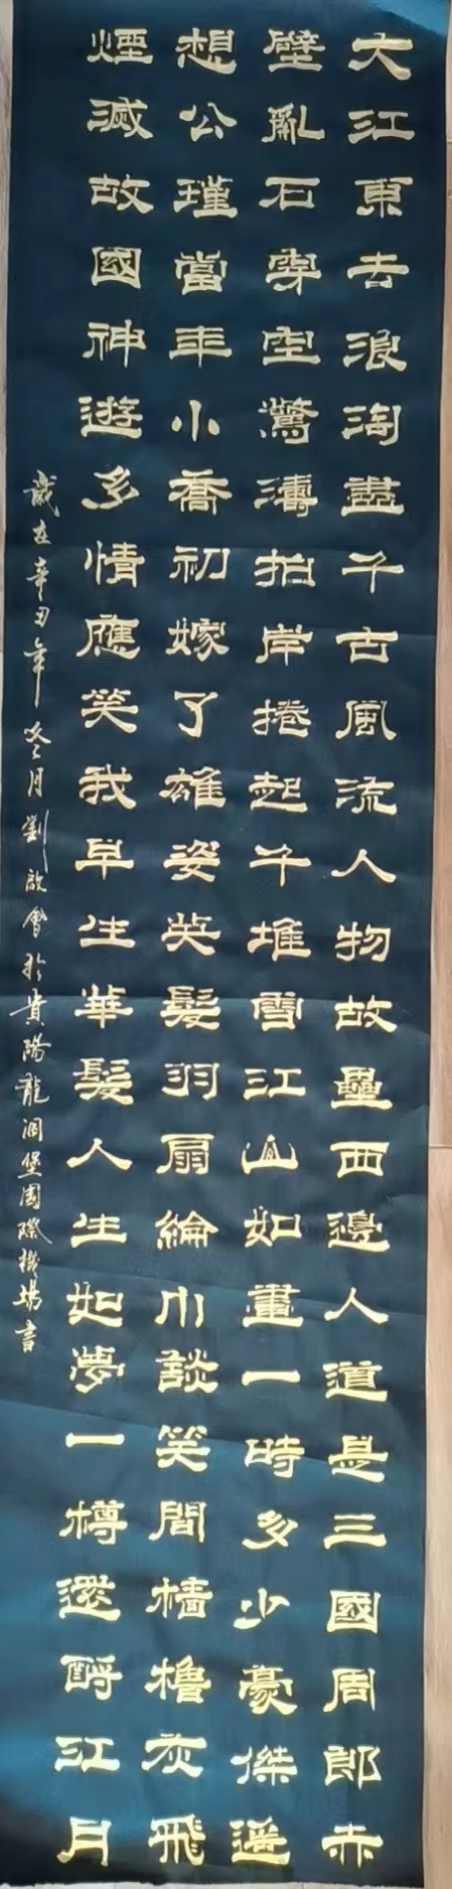 大江東去浪淘盡千古風流人物故壘西邊人道是三國周郎赤
壁亂石穿空驚濤拍岸捲起千堆雪江山如畫一時多少豪傑遙
想公瑾當年小喬初嫁了雄姿英髮羽扇綸巾談笑間檣櫓灰飛
煙滅故國神遊多情應笑我早生華髮人生如夢一樽還酹江月
歲在辛丑年冬月劉啟會於貴陽龍洞堡國際機場書